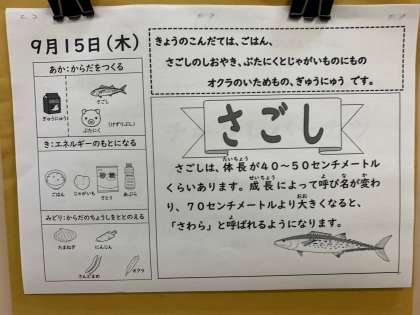 9月15日(木)
きょうのこんだては、ごはん、
さごしのしおやき、ぶたにくとじゃがいものにもの
オクラのいためもの、ぎゅうにゅう です。
あか:からだをつくる
さごし
ぎゅうにゅう
ぶたにく
(けずりぶし)
き:エネルギーのもとになる
ごはん
じゃがいも
さとう
あぶら
みどり:からだのちょうしをととのえる
たまねぎ
にんじん
さんどまめ
オクラ
さごし
さごしは、体長が40~50センチメートル
くらいあります。成長によって呼び名が変わ
り、70センチメートルより大きくなると、
「さわら」と呼ばれるようになります。